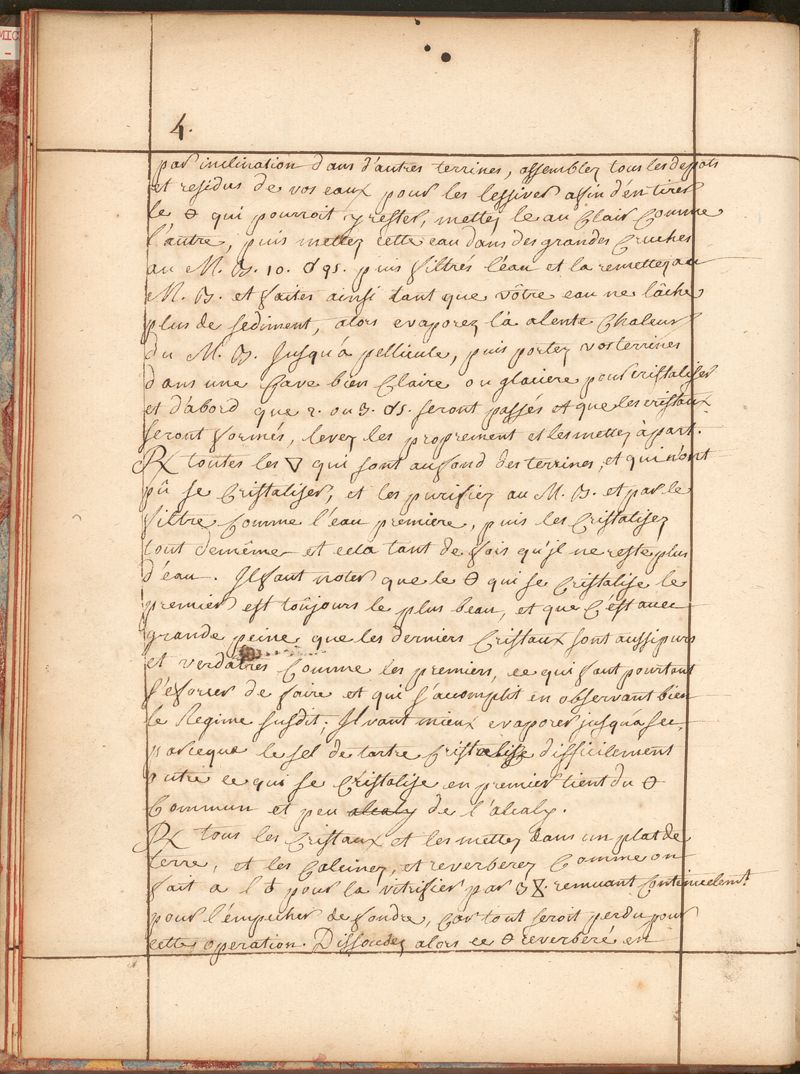 MIC
-
4.
par inclination dans d'autres terrines, assemblez tous les depots
et residus de vos eaux pour les lessiver afin d'en tirer
le 🜔 qui pourroit y rester, mettez le au Clair Comme
l'autre, puis mettez cette eau dans des grandes Cruches
au M. B. 10. puis filtrés l'eau et la remettez au
M. B. et faites ainsi tant que vôtre eau ne lâche
plus de sediment, alors evaporez la a lente Chaleur
du M. B. Jusqu'à pellicule, puis portez vos terrines
dans une Cave bien Claire ou glaciere pour cristaliser
et d'abord que 2. ou 3. seront passés et que les cristaux
seront formés, levez les proprement et les mettez à part.
℞ toutes les 🜄 qui sont au fond des terrines, et qui n'ont
pû se Cristaliser, et les purifiez au M. B. et par le
filtre Comme l'eau premiere, puis les Cristalisez
tout demême et cela tant de fois qu'jl ne reste plus
d'eau. Jl faut noter que le 🜔 qui se Cristalise le
premier est toûjours le plus beau, et que C'est avec
grande peine que les derniers Cristaux sont aussi purs
et verdatres Comme les premiers, ce qui faut pourtant
s'eforcer de faire et qui s'acomplit en observant bien
le Regime susdit; Jl vaut mieux evaporer jusqu'a sec,
parceque le sel de tartre Cristalise difficilement
outre ce qui se Cristalise en premier tient du 🜔
Commun et peu alcaly de l'alcaly.
℞ tous les Cristaux et les mettez dans un plat de
terre, et les Calcinez, et reverberez Comme on
fait a l'♁ pour la vitrifier par 3 remuant Continuelemt.
pour l'empecher de fondre, Car tout seroit perdu pour
cette operation. Dissoudez alors ce 🜔 reverberé en